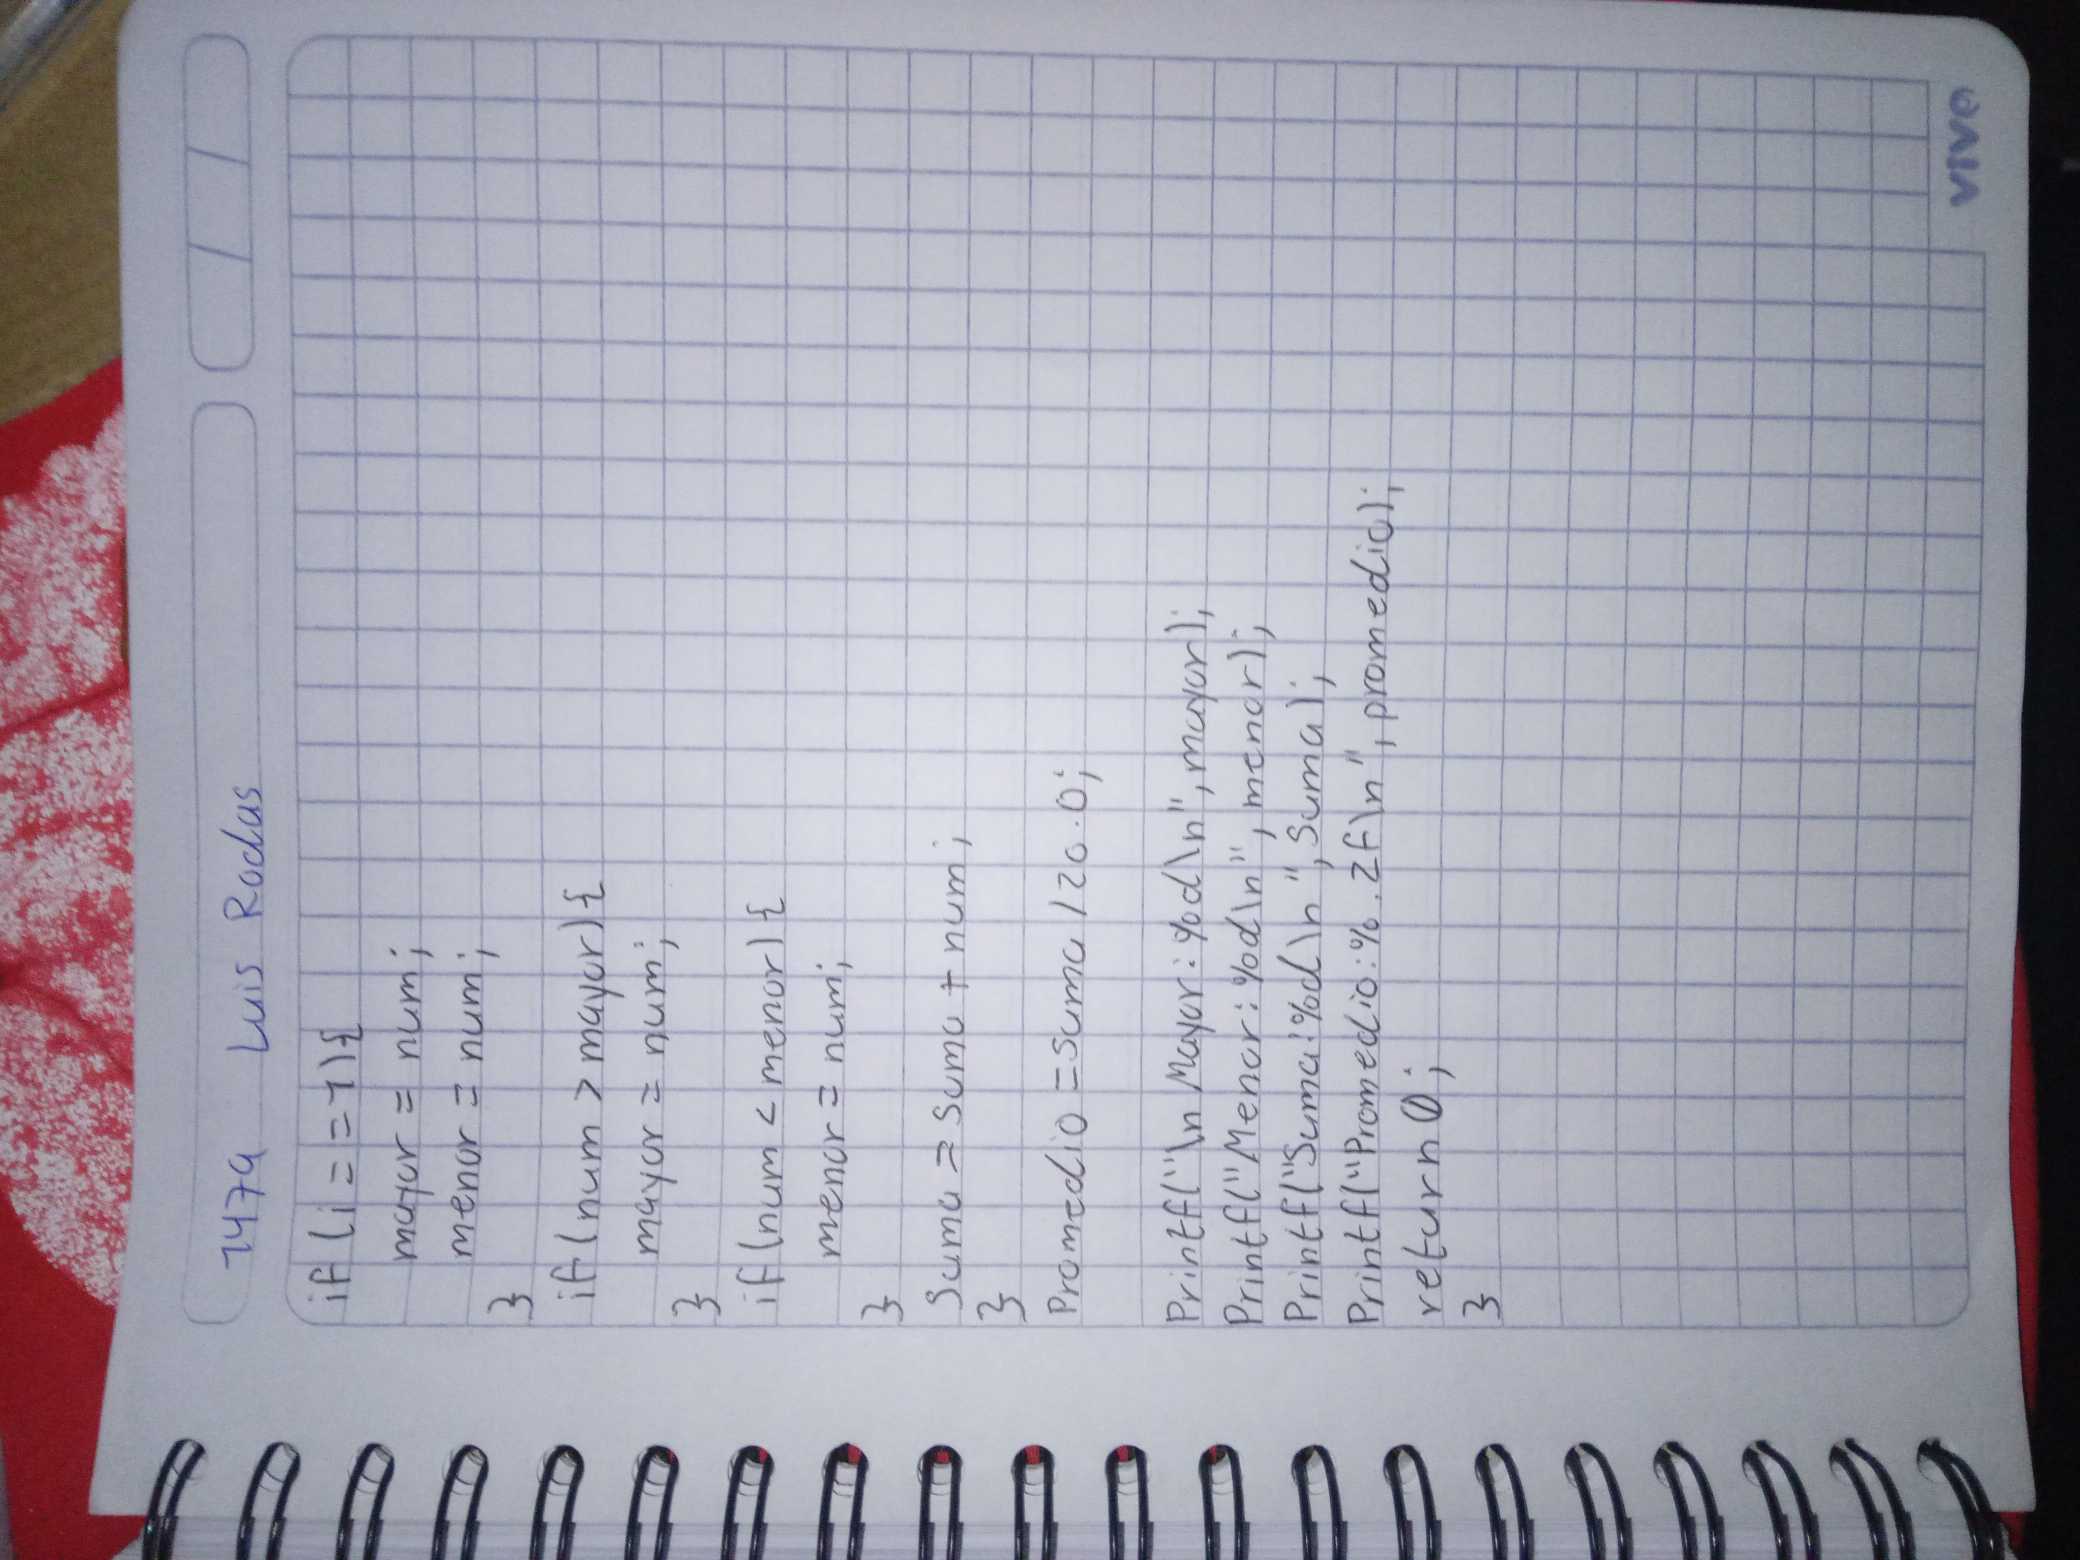 7479 Luis Rodas
if (i == 1){
mayor = num;
menor = num;
}
if (num > mayor){
mayor = num;
}
if (num < menor){
menor = num;
}
Suma = Suma + num;
}
Promedio = Suma / 20.0;
Printf("\n Mayor: %d\n", mayor);
Printf("Menor: %d\n", menor);
Printf("Suma: %d\n", Suma);
Printf("Promedio: %.2f\n", promedio);
return 0;
}
VIVA